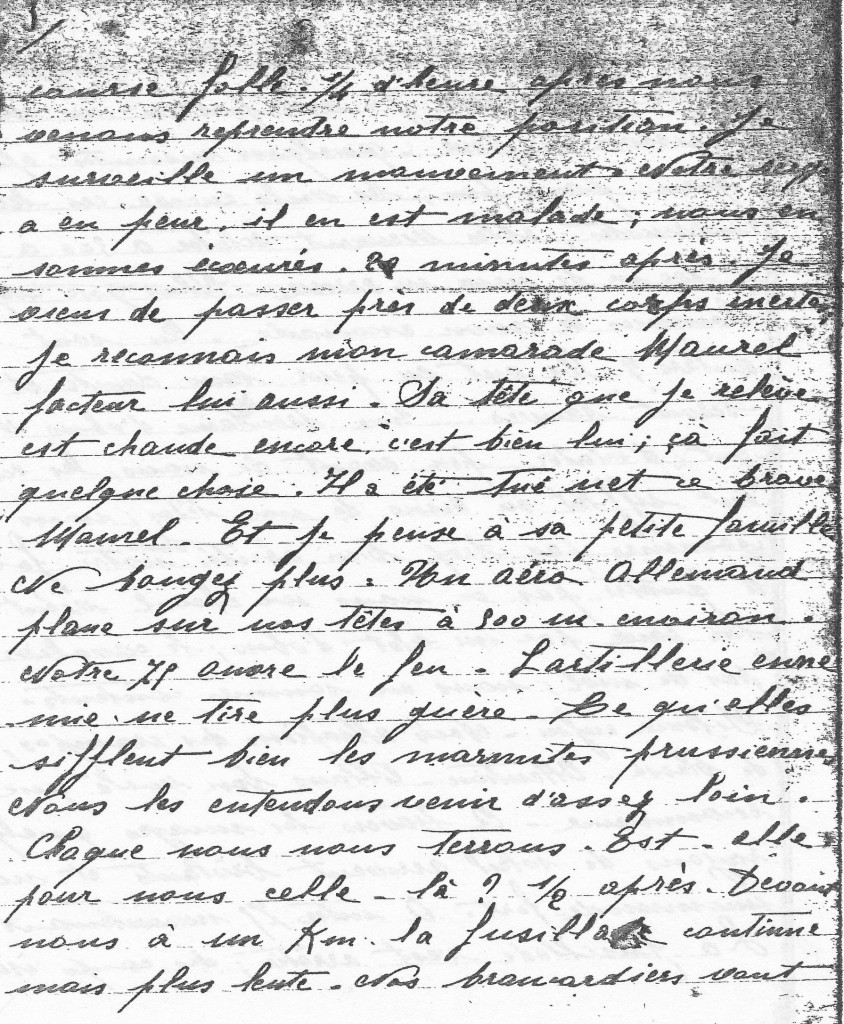 course folle. 1/4 d'heure après nous
venons reprendre notre position. Je
surveille un mouvement. Notre serg
a eu peur, il en est malade ; nous en
sommes écœurés. 20 minutes après. Je
viens de passer près de deux corps inertes
Je reconnais mon camarade Maurel
facteur lui aussi. Sa tête que je relève
est chaude encore, c'est bien lui ; çà fait
quelque chose. Il a été tué net ce brave
Maurel. Et je pense à sa petite famille
Ne bougez plus. Un aéro Allemand
plane sur nos têtes à 500 m. environ.
Notre 75 ouvre le feu. Lartillerie enne
mie ne tire plus guere. Ce qu'elles
sifflent bien les marmites prussiennes
Nous les entendons venir d'assez loin.
Chaque nous nous terrons. Est-elle
pour nous celle-là ? 1/2 après. Devant
nous à un Km. la fusillade continue
mais plus lente. Nos brancardiers vont